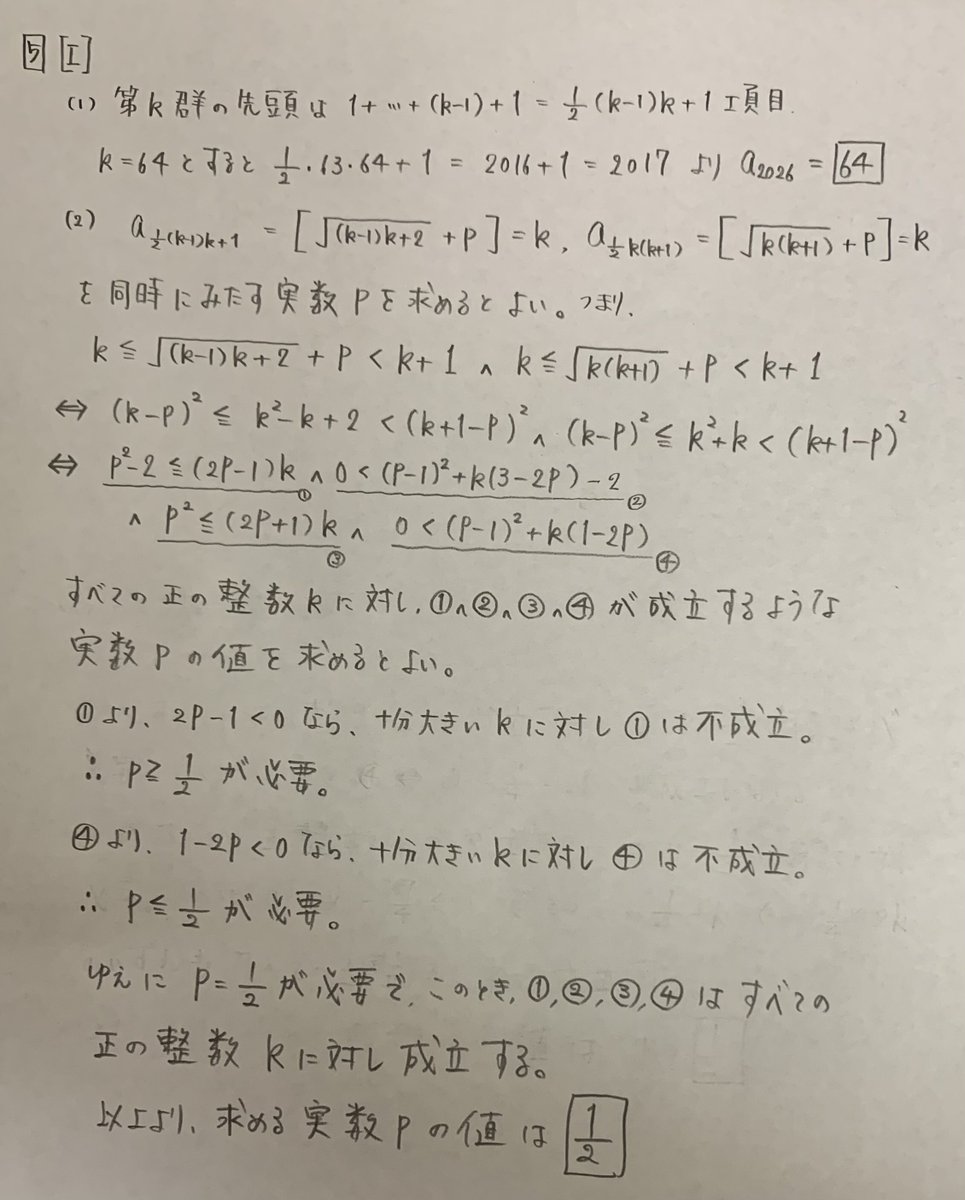 5 [I]
(1) 第k群の先頭は 1+…+(k-1)+1 = 1/2(k-1)k+1 項目.
k=64とすると 1/2・63・64+1 = 2016+1 = 2017 より a_2026 = 64
(2) a_{1/2(k-1)k+1} = [√((k-1)k+2) + p] = k, a_{1/2k(k+1)} = [√(k(k+1)) + p] = k
を同時にみたす実数 p を求めるとよい。つまり,
k ≦ √((k-1)k+2) + p < k+1 ∧ k ≦ √(k(k+1)) + p < k+1
⇔ (k-p)² ≦ k²-k+2 < (k+1-p)² ∧ (k-p)² ≦ k²+k < (k+1-p)²
⇔ p²-2 ≦ (2p-1)k ① ∧ 0 < (p-1)²+k(3-2p)-2 ②
∧ p² ≦ (2p+1)k ③ ∧ 0 < (p-1)²+k(1-2p) ④
すべての正の整数 k に対し, ①∧②∧③∧④ が成立するような
実数 p の値を求めるとよい。
①より、2p-1<0 なら、十分大きい k に対し ① は不成立。
∴ p≧1/2 が必要。
④より、1-2p<0 なら、十分大きい k に対し ④ は不成立。
∴ p≦1/2 が必要。
ゆえに p=1/2 が必要で, このとき, ①,②,③,④ はすべての
正の整数 k に対し成立する。
以上より、求める実数 p の値は 1/2